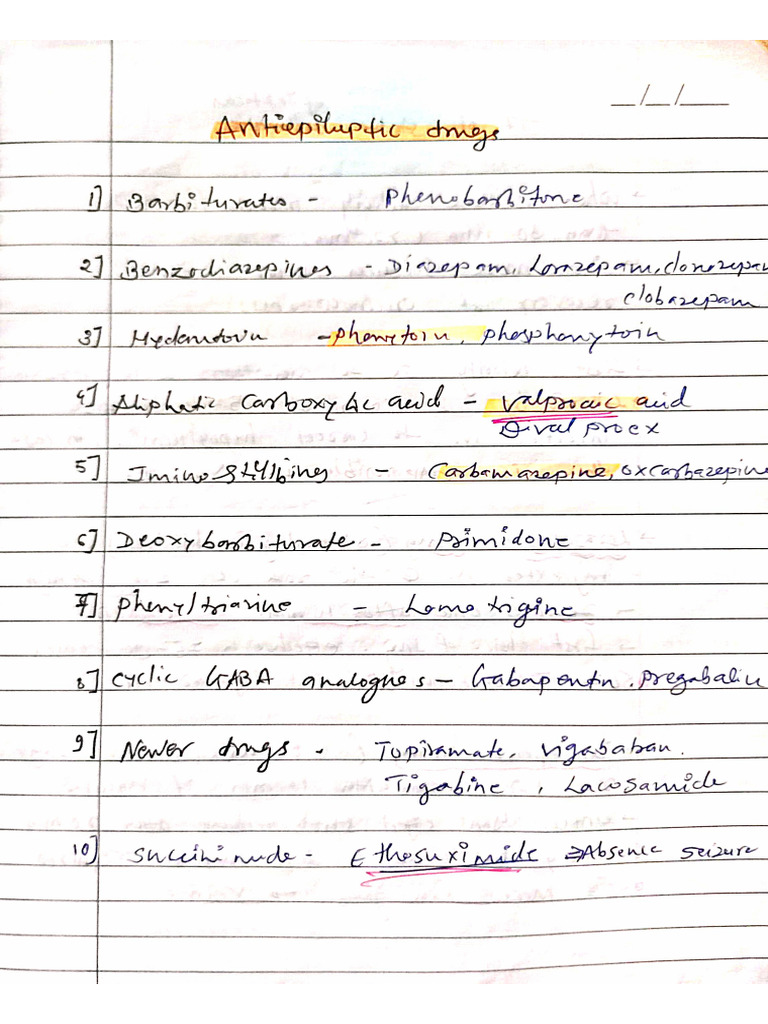 __/__/____
Antiepileptic drugs
1] Barbiturates - Phenobarbitone
2] Benzodiazepines - Diazepam, Lorazepam, clonazepam
clobazepam
3] Hydantoin - phenytoin, phosphanytoin
4] Aliphatic carboxylic acid - valproaic acid
Divalproex
5] Imino stilbines - Carbamazepine, oxcarbazepine
6] Deoxybarbiturate - primidone
7] phenyltriazine - Lamotrigine
8] cyclic GABA analogues - Gabapentin. pregabalin
9] Newer drugs - Topiramate, vigababan.
Tigabine, Lacosamide
10] Succininude - Ethosuximide ⇒ Absence seizure